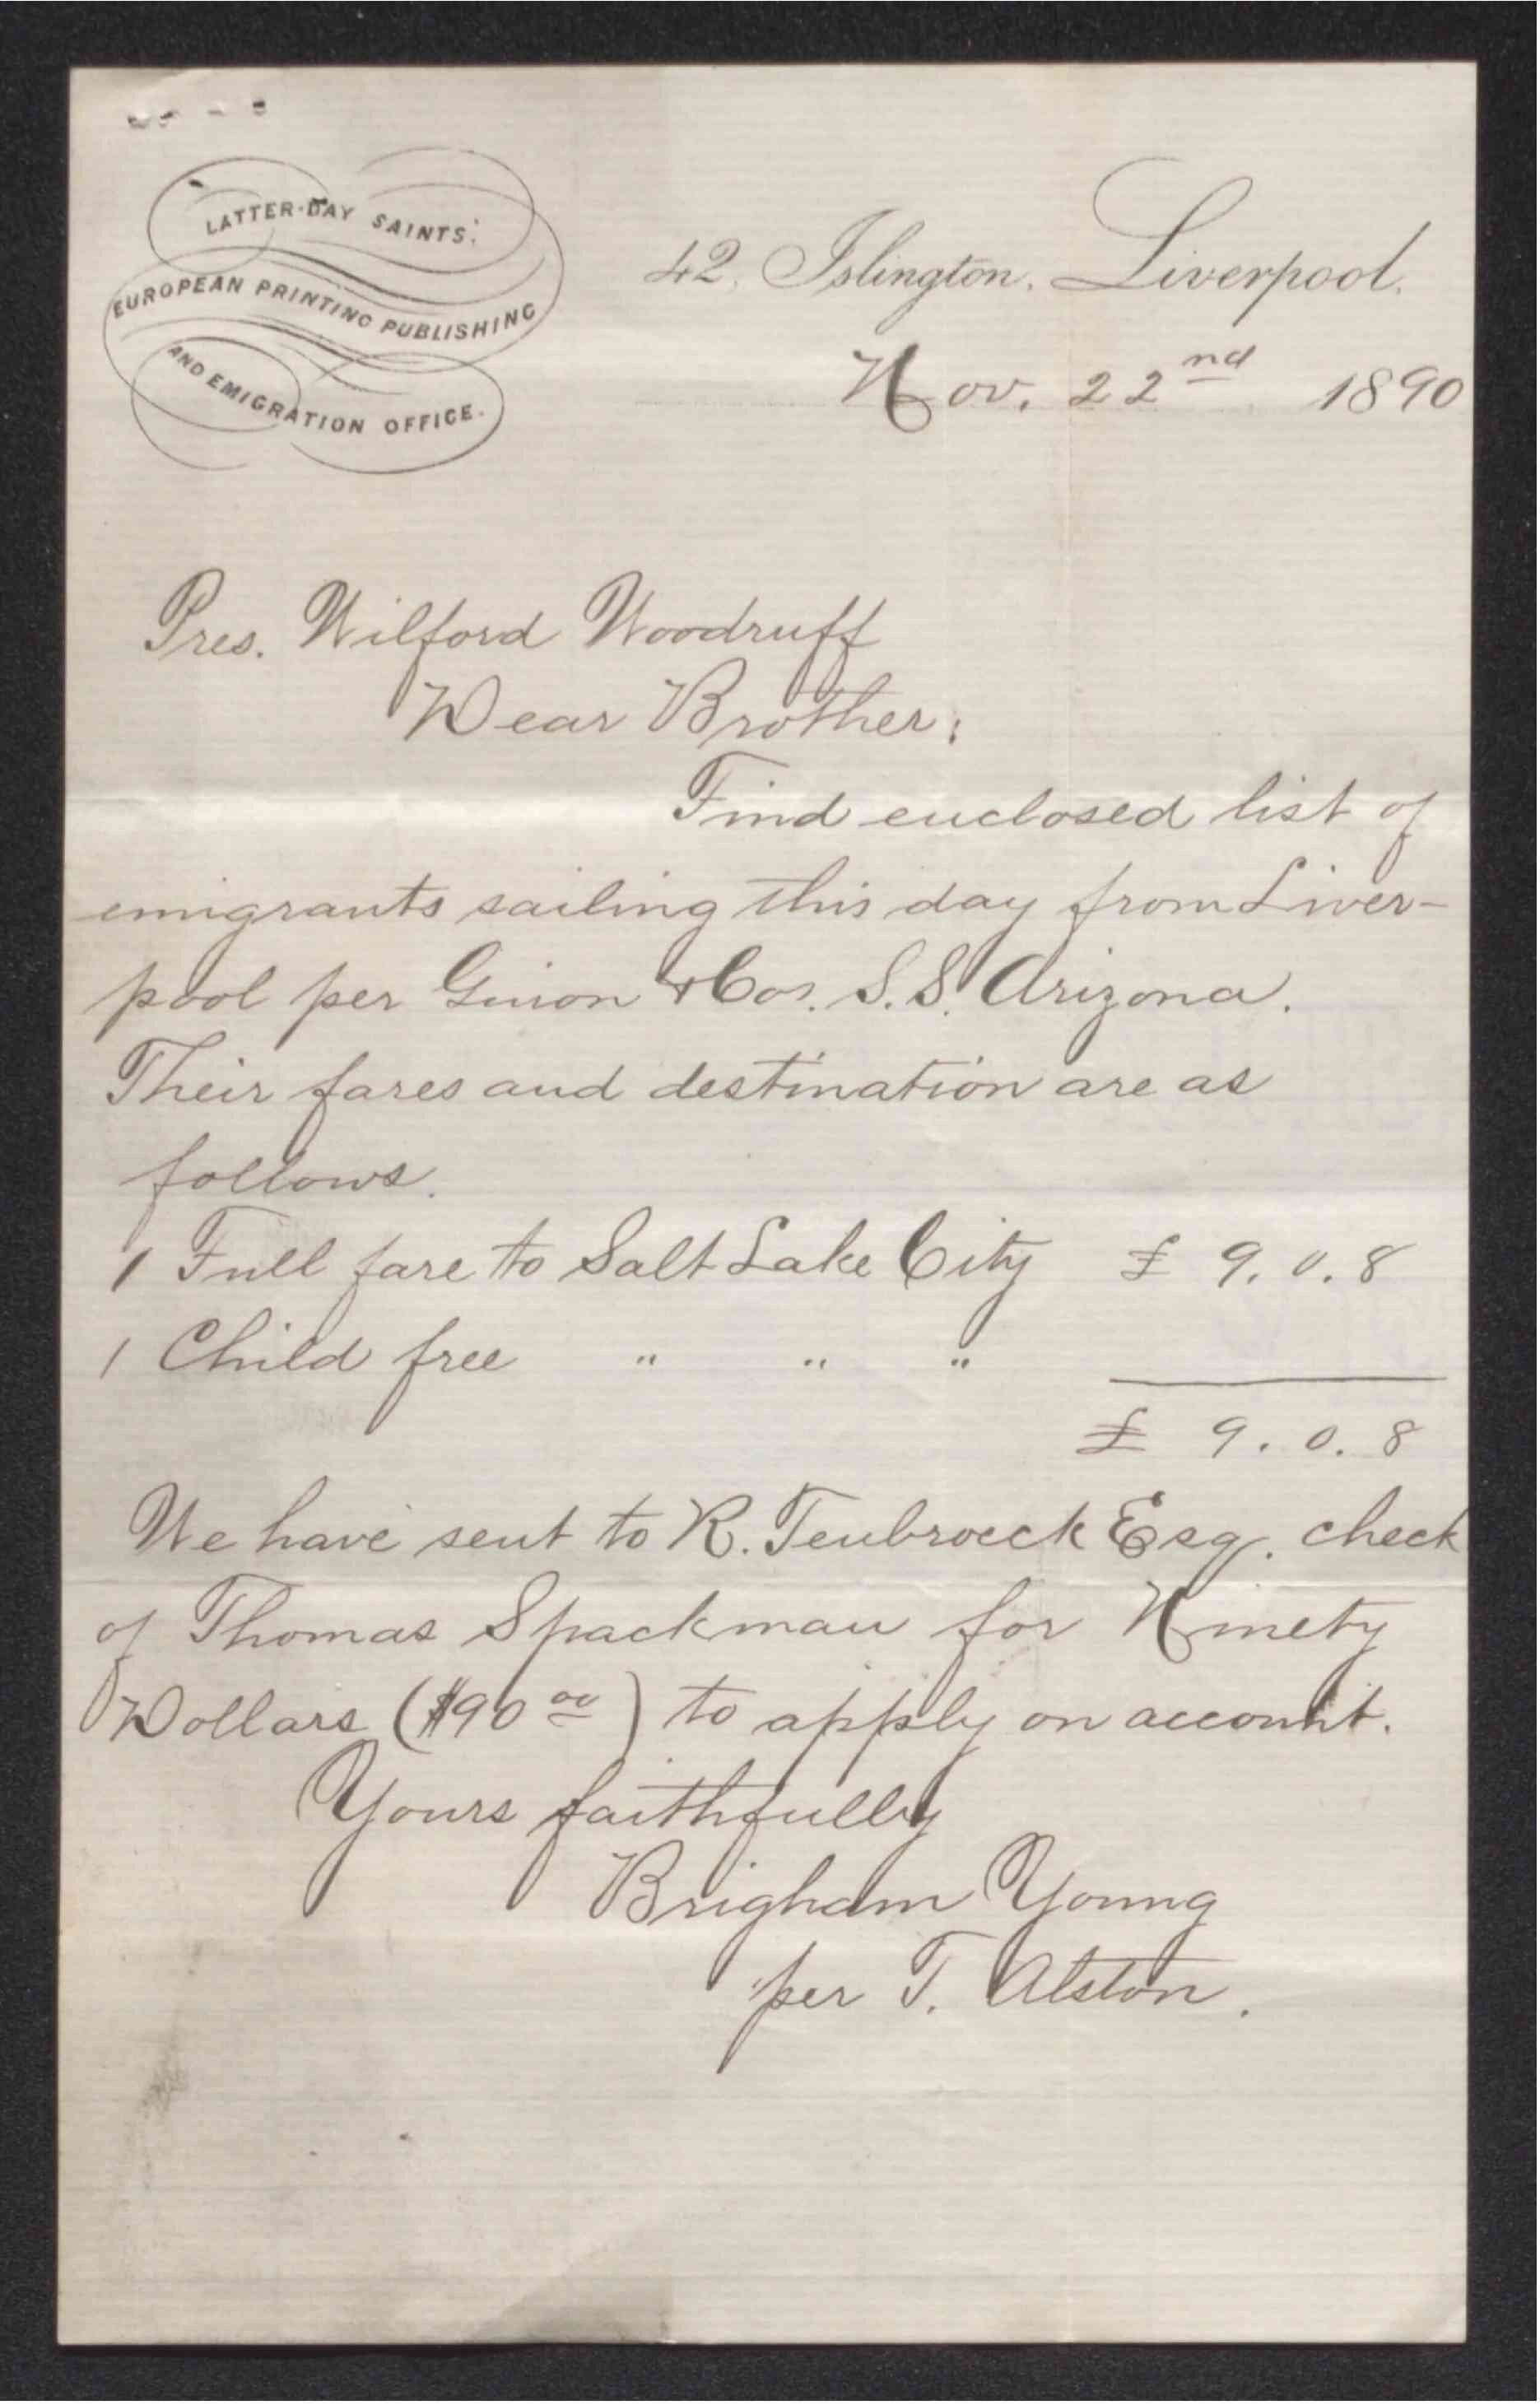 LATTER-DAY SAINTS'
EUROPEAN PRINTING PUBLISHING
AND EMIGRATION OFFICE.
42, Islington, Liverpool,
Nov. 22nd 1890
Pres. Wilford Woodruff
Dear Brother:
Find enclosed list of
emigrants sailing this day from Liver-
pool per Guion & Cos. S.S. Arizona.
Their fares and destination are as
follows.
1 Full fare to Salt Lake City £ 9.0.8
1 Child free " " "
£ 9.0.8
We have sent to R. Tenbroeck Esq. check
of Thomas Spackman for Ninety
Dollars ($90 00) to apply on account.
Yours faithfully
Brigham Young
per T. Alston.